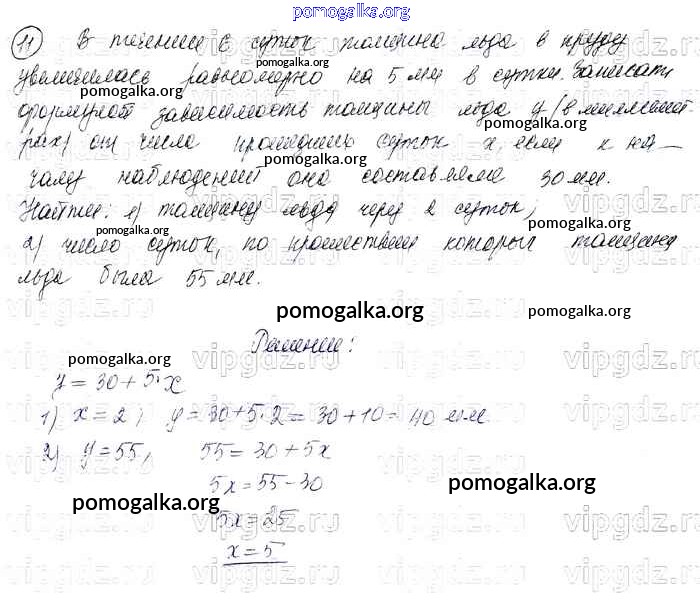 pomogalka.org
11 В течении 6 суток толщина льда в пруду
увеличилась равномерно на 5 мм в сутки. Записать
формулой зависимость толщины льда y (в миллимет-
pomogalka.org
рах) от числа прошедших суток x, если к на-
pomogalka.org
чалу наблюдений она составляла 30 мм.
Найти: 1) толщину льда через 2 суток;
pomogalka.org pomogalka.org
2) число суток, по прошествии которых толщина
льда была 55 мм.
pomogalka.org pomogalka.org
Решение:
pomogalka.org
y = 30 + 5·x
1) x = 2; y = 30 + 5·2 = 30 + 10 = 40 мм.
2) y = 55, 55 = 30 + 5x
5x = 55 - 30
pomogalka.org pomogalka.org
5x = 25
x = 5
vipgdz.ru